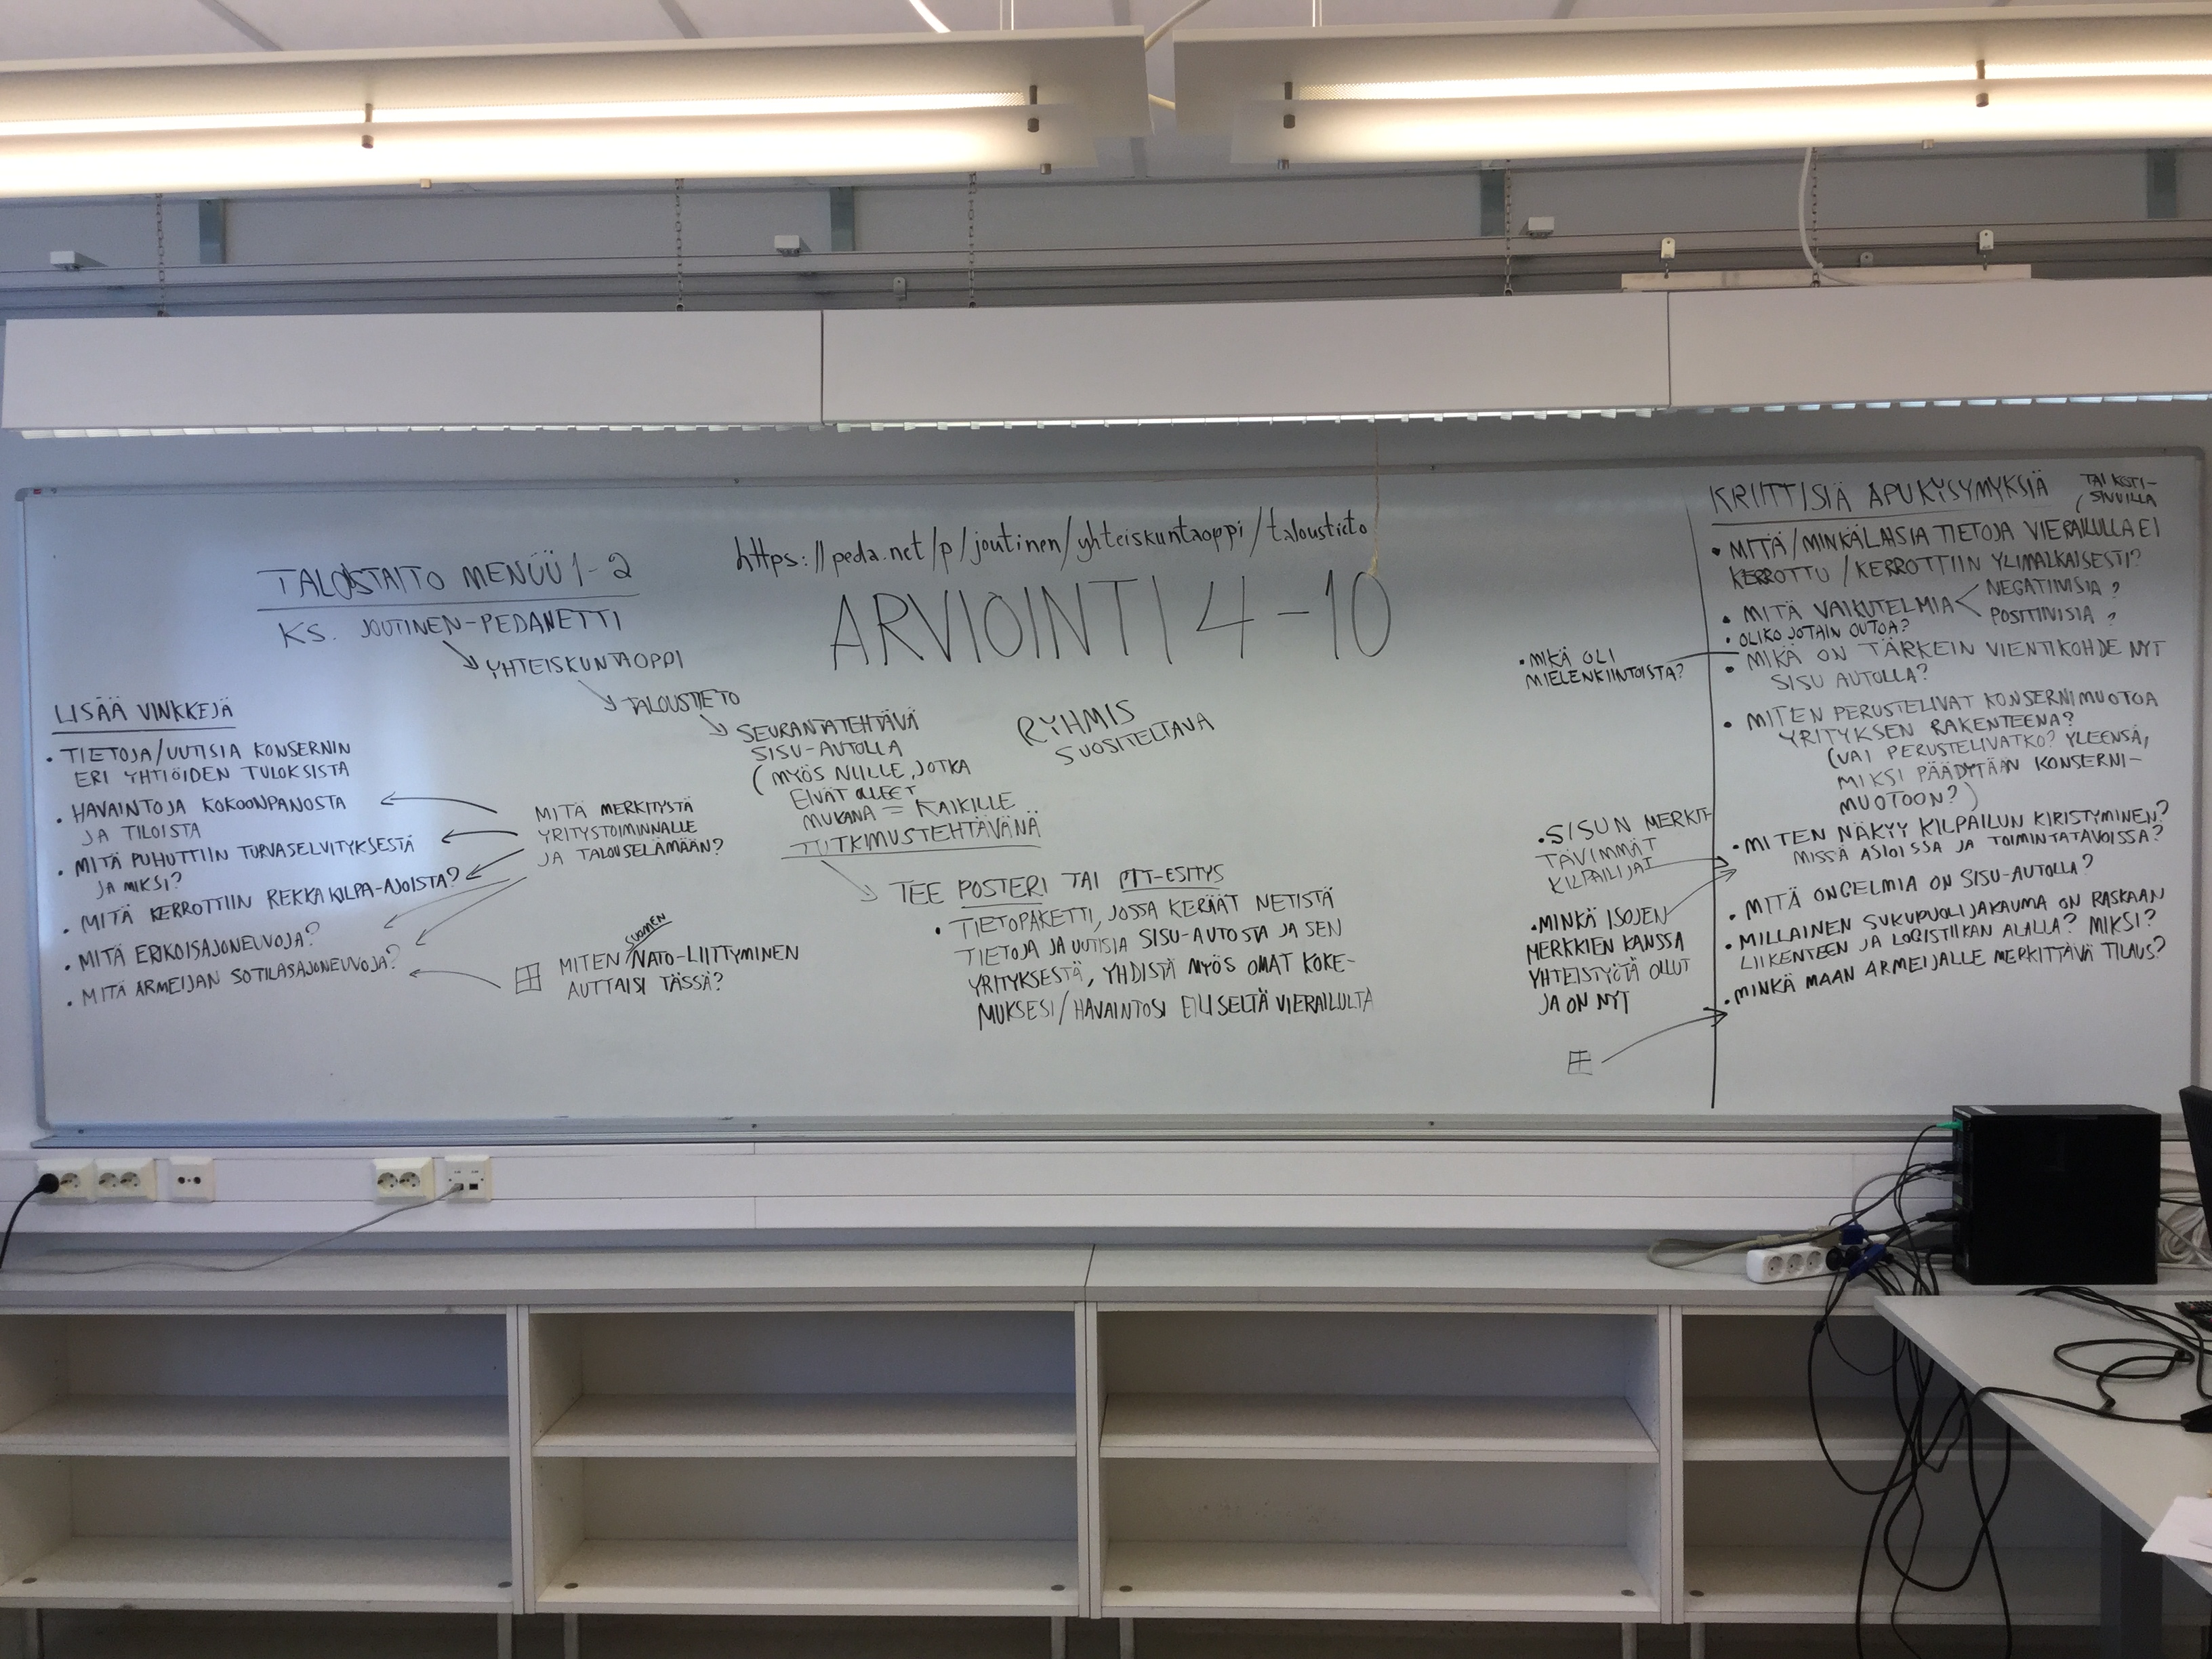 https://peda.net/p/joutinen/yhteiskuntaoppi/taloustieto
ARVIOINTI 4-10
TALOUSTAITO MENÜÜ 1-2
KS. JOUTINEN-PEDANETTI
YHTEISKUNTAOPPI
TALOUSTIETO
SEURANTATEHTÄVÄ
SISU-AUTOLLA
(MYÖS NIILLE, JOTKA
EIVÄT OLLEET
MUKANA = KAIKILLE
TUTKIMUSTEHTÄVÄNÄ
RYHMIS
SUOSITELTAVA
TEE POSTERI TAI PTT-ESITYS
• TIETOPAKETTI, JOSSA KERÄÄT NETISTÄ
TIETOJA JA UUTISIA SISU-AUTOSTA JA SEN
YRITYKSESTÄ, YHDISTÄ MYÖS OMAT KOKE-
MUKSESI/HAVAINTOSI EILISELTÄ VIERAILULTA
LISÄÄ VINKKEJÄ
• TIETOJA/UUTISIA KONSERNIN
ERI YHTIÖIDEN TULOKSISTA
• HAVAINTOJA KOKOONPANOSTA
JA TILOISTA
• MITÄ PUHUTTIIN TURVASELVITYKSESTÄ
JA MIKSI?
• MITÄ KERROTTIIN REKKA KILPA-AJOISTA?
• MITÄ ERIKOISAJONEUVOJA?
• MITÄ ARMEIJAN SOTILASAJONEUVOJA?
MITÄ MERKITYSTÄ
YRITYSTOIMINNALLE
JA TALOUSELÄMÄÄN?
SUOMEN
MITEN NATO-LIITTYMINEN
AUTTAISI TÄSSÄ?
• MIKÄ OLI
MIELENKIINTOISTA?
• SISUN MERKIT-
TÄVIMMÄT
KILPAILIJAT
• MINKÄ ISOJEN
MERKKIEN KANSSA
YHTEISTYÖTÄ OLLUT
JA ON NYT
KRIITTISIÄ APUKYSYMYKSIÄ
TAI KOTI-
SIVUILLA
• MITÄ/MINKÄLAISIA TIETOJA VIERAILULLA EI
KERROTTU / KERROTTIIN YLIMALKAISESTI?
• MITÄ VAIKUTELMIA
NEGATIIVISIA?
POSITIIVISIA?
• OLIKO JOTAIN OUTOA?
• MIKÄ ON TÄRKEIN VIENTIKOHDE NYT
SISU AUTOLLA?
• MITEN PERUSTELIVAT KONSERNIMUOTOA
YRITYKSEN RAKENTEENA?
(VAI PERUSTELIVATKO? YLEENSÄ,
MIKSI PÄÄDYTÄÄN KONSERNI-
MUOTOON?)
• MITEN NÄKYY KILPAILUN KIRISTYMINEN?
MISSÄ ASIOISSA JA TOIMINTATAVOISSA?
• MITÄ ONGELMIA ON SISU-AUTOLLA?
• MILLAINEN SUKUPUOLIJAKAUMA ON RASKAAN
LIIKENTEEN JA LOGISTIIKAN ALALLA? MIKSI?
• MINKÄ MAAN ARMEIJALLE MERKITTÄVÄ TILAUS?